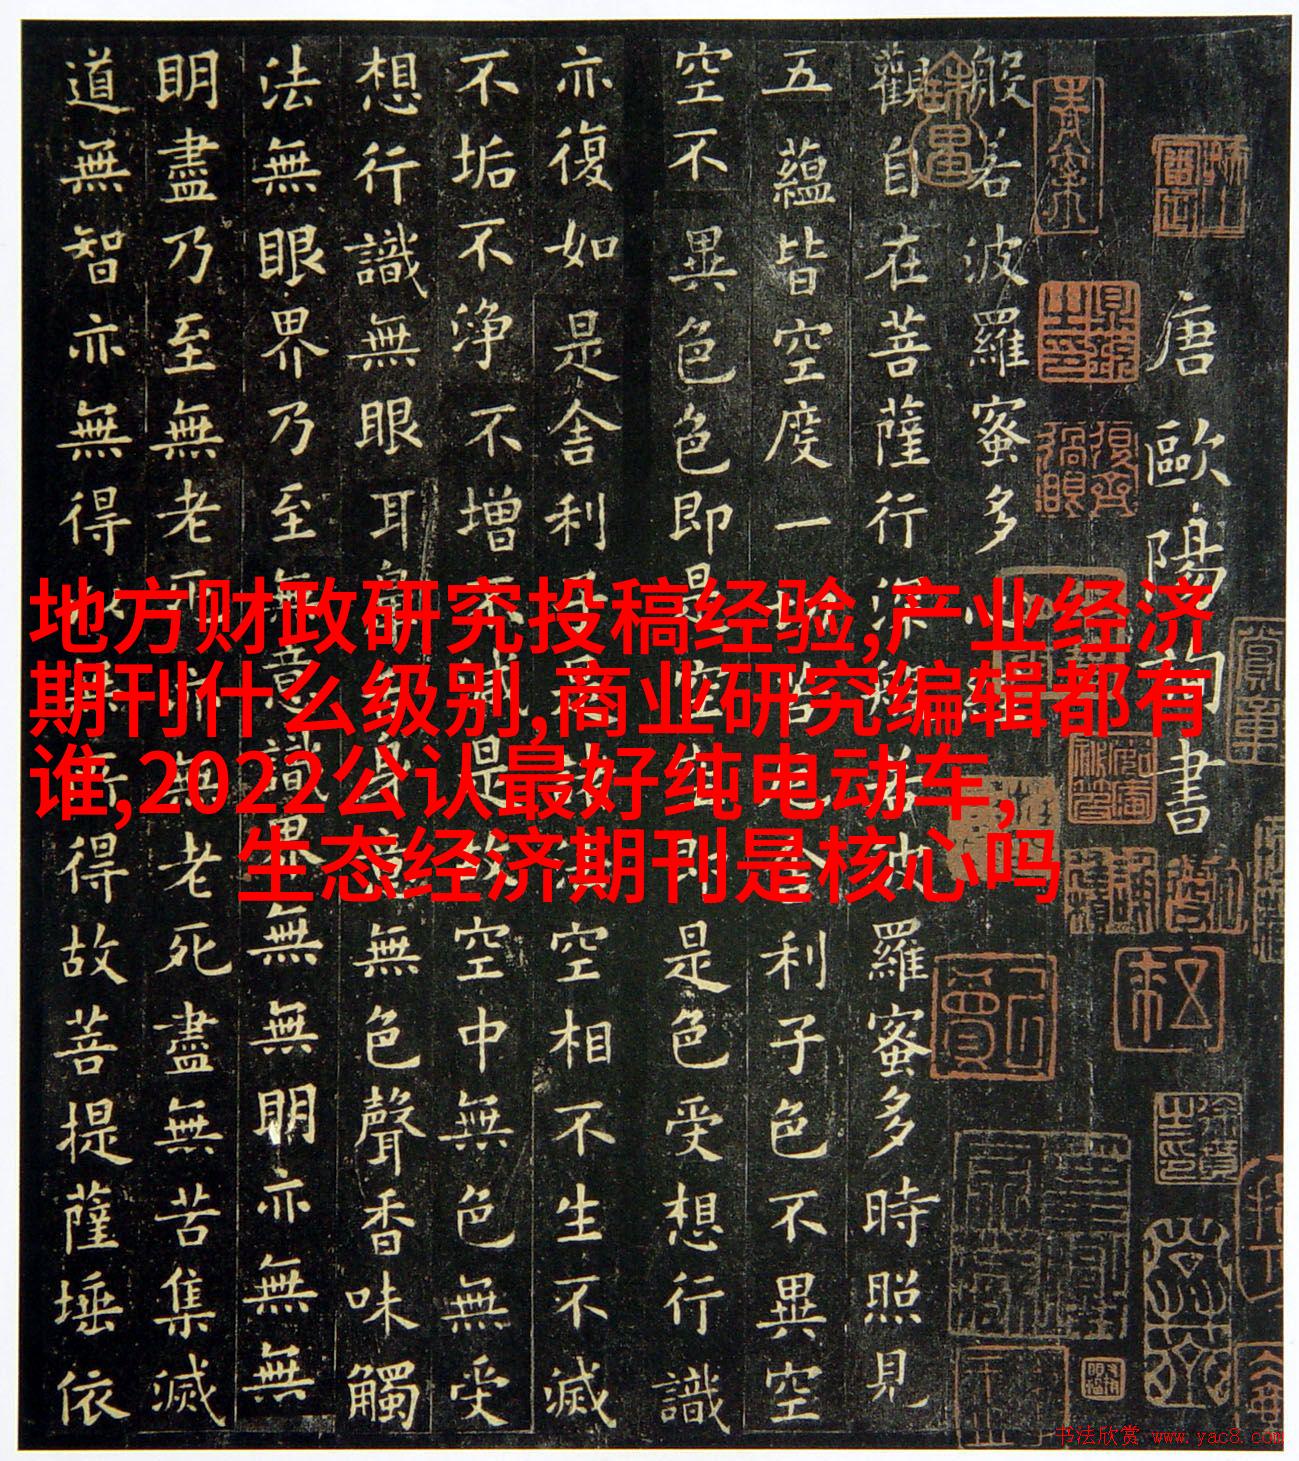 唐歐陽詢書
般若波羅蜜多心
觀自在菩薩行深般若波羅蜜多時照見
五蘊皆空度一切苦厄舍利子色不異空
空不異色色即是空空即是色受想行識
亦復如是舍利子是諸法空相不生不滅
不垢不淨不增不減是故空中無色無受
想行識無眼耳鼻舌身意無色聲香味觸
法無眼界乃至無意識界無無明亦無無
明盡乃至無老死亦無老死盡無苦集滅
道無智亦無得以無所得故菩提薩埵依
地方财政研究投稿经验,产业经济
期刊什么级别,商业研究编辑都有
谁,2022公认最好纯电动车,
生态经济期刊是核心吗
书法欣赏 www.yac8.com